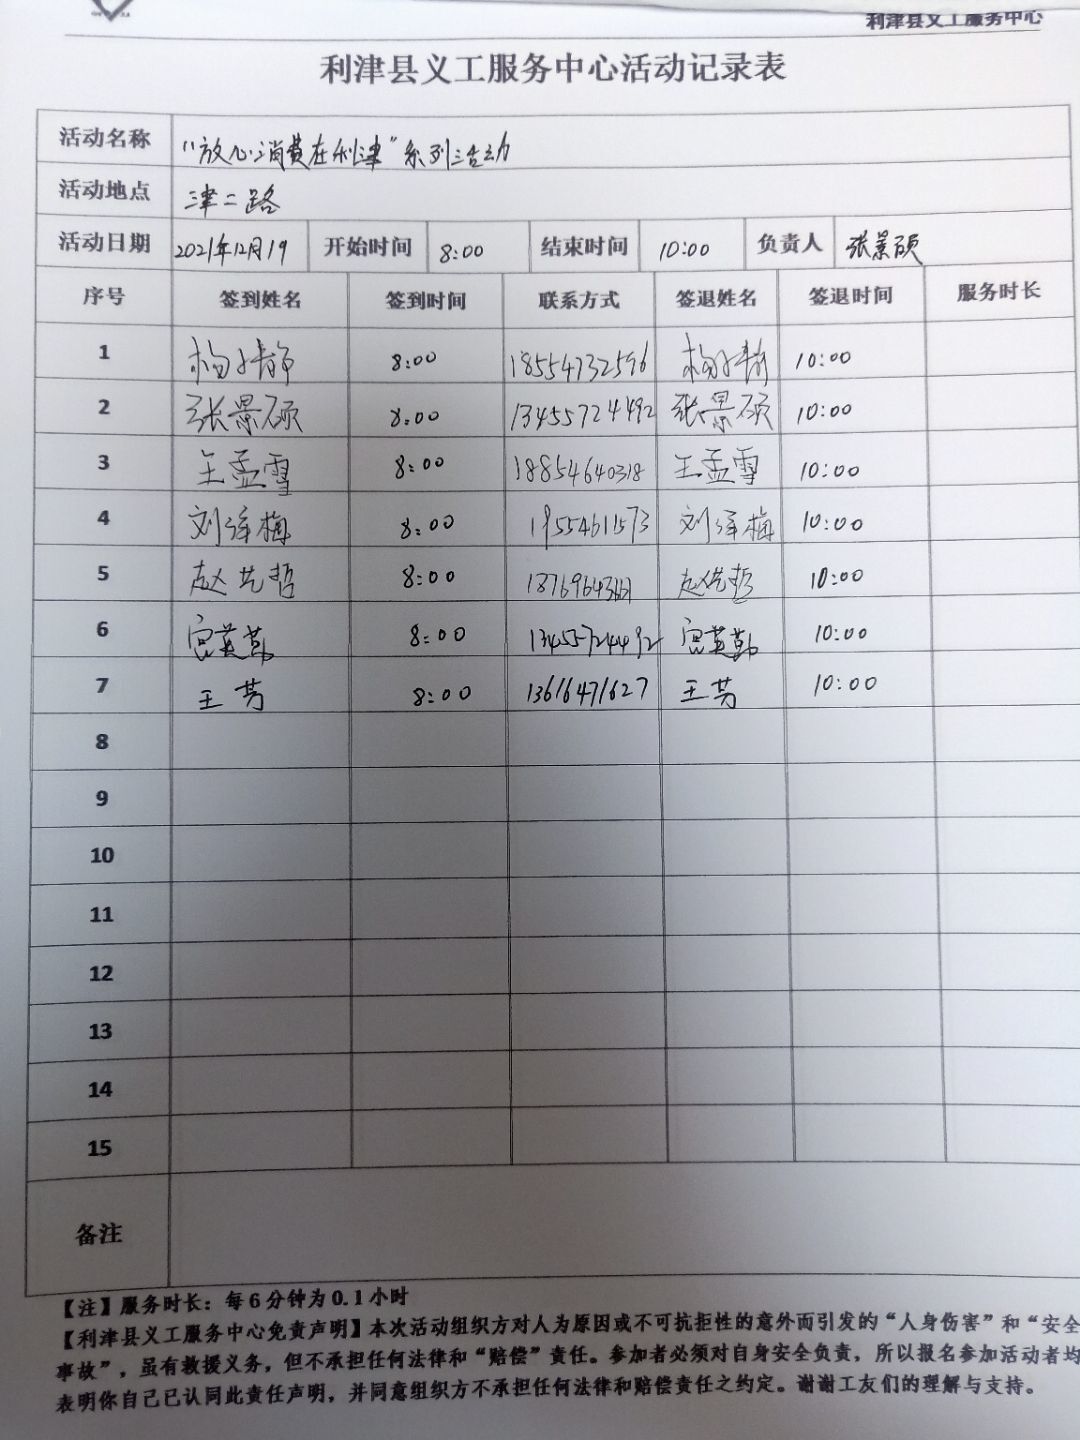 利津县义工服务中心
利津县义工服务中心活动记录表
活动名称 “放心消费在利津”系列活动
活动地点 津二路
活动日期 2021年12月19 开始时间 8:00 结束时间 10:00 负责人 张景硕
序号 签到姓名 签到时间 联系方式 签退姓名 签退时间 服务时长
1 8:00 18554732596 10:00
2 张景硕 8:00 13455724492 张景硕 10:00
3 王孟雪 8:00 18854640318 王孟雪 10:00
4 刘泽梅 8:00 19554611573 刘泽梅 10:00
5 8:00 10:00
6 宫英勤 8:00 13455724492 宫英勤 10:00
7 王芳 8:00 13616471627 王芳 10:00
8
9
10
11
12
13
14
15
备注
【注】服务时长：每6分钟为0.1小时
【利津县义工服务中心免责声明】本次活动组织方对人为原因或不可抗拒性的意外而引发的“人身伤害”和“安全
事故”，虽有救援义务，但不承担任何法律和“赔偿”责任。参加者必须对自身安全负责，所以报名参加活动者均
表明你自己已认同此责任声明，并同意组织方不承担任何法律和赔偿责任之约定。谢谢工友们的理解与支持。